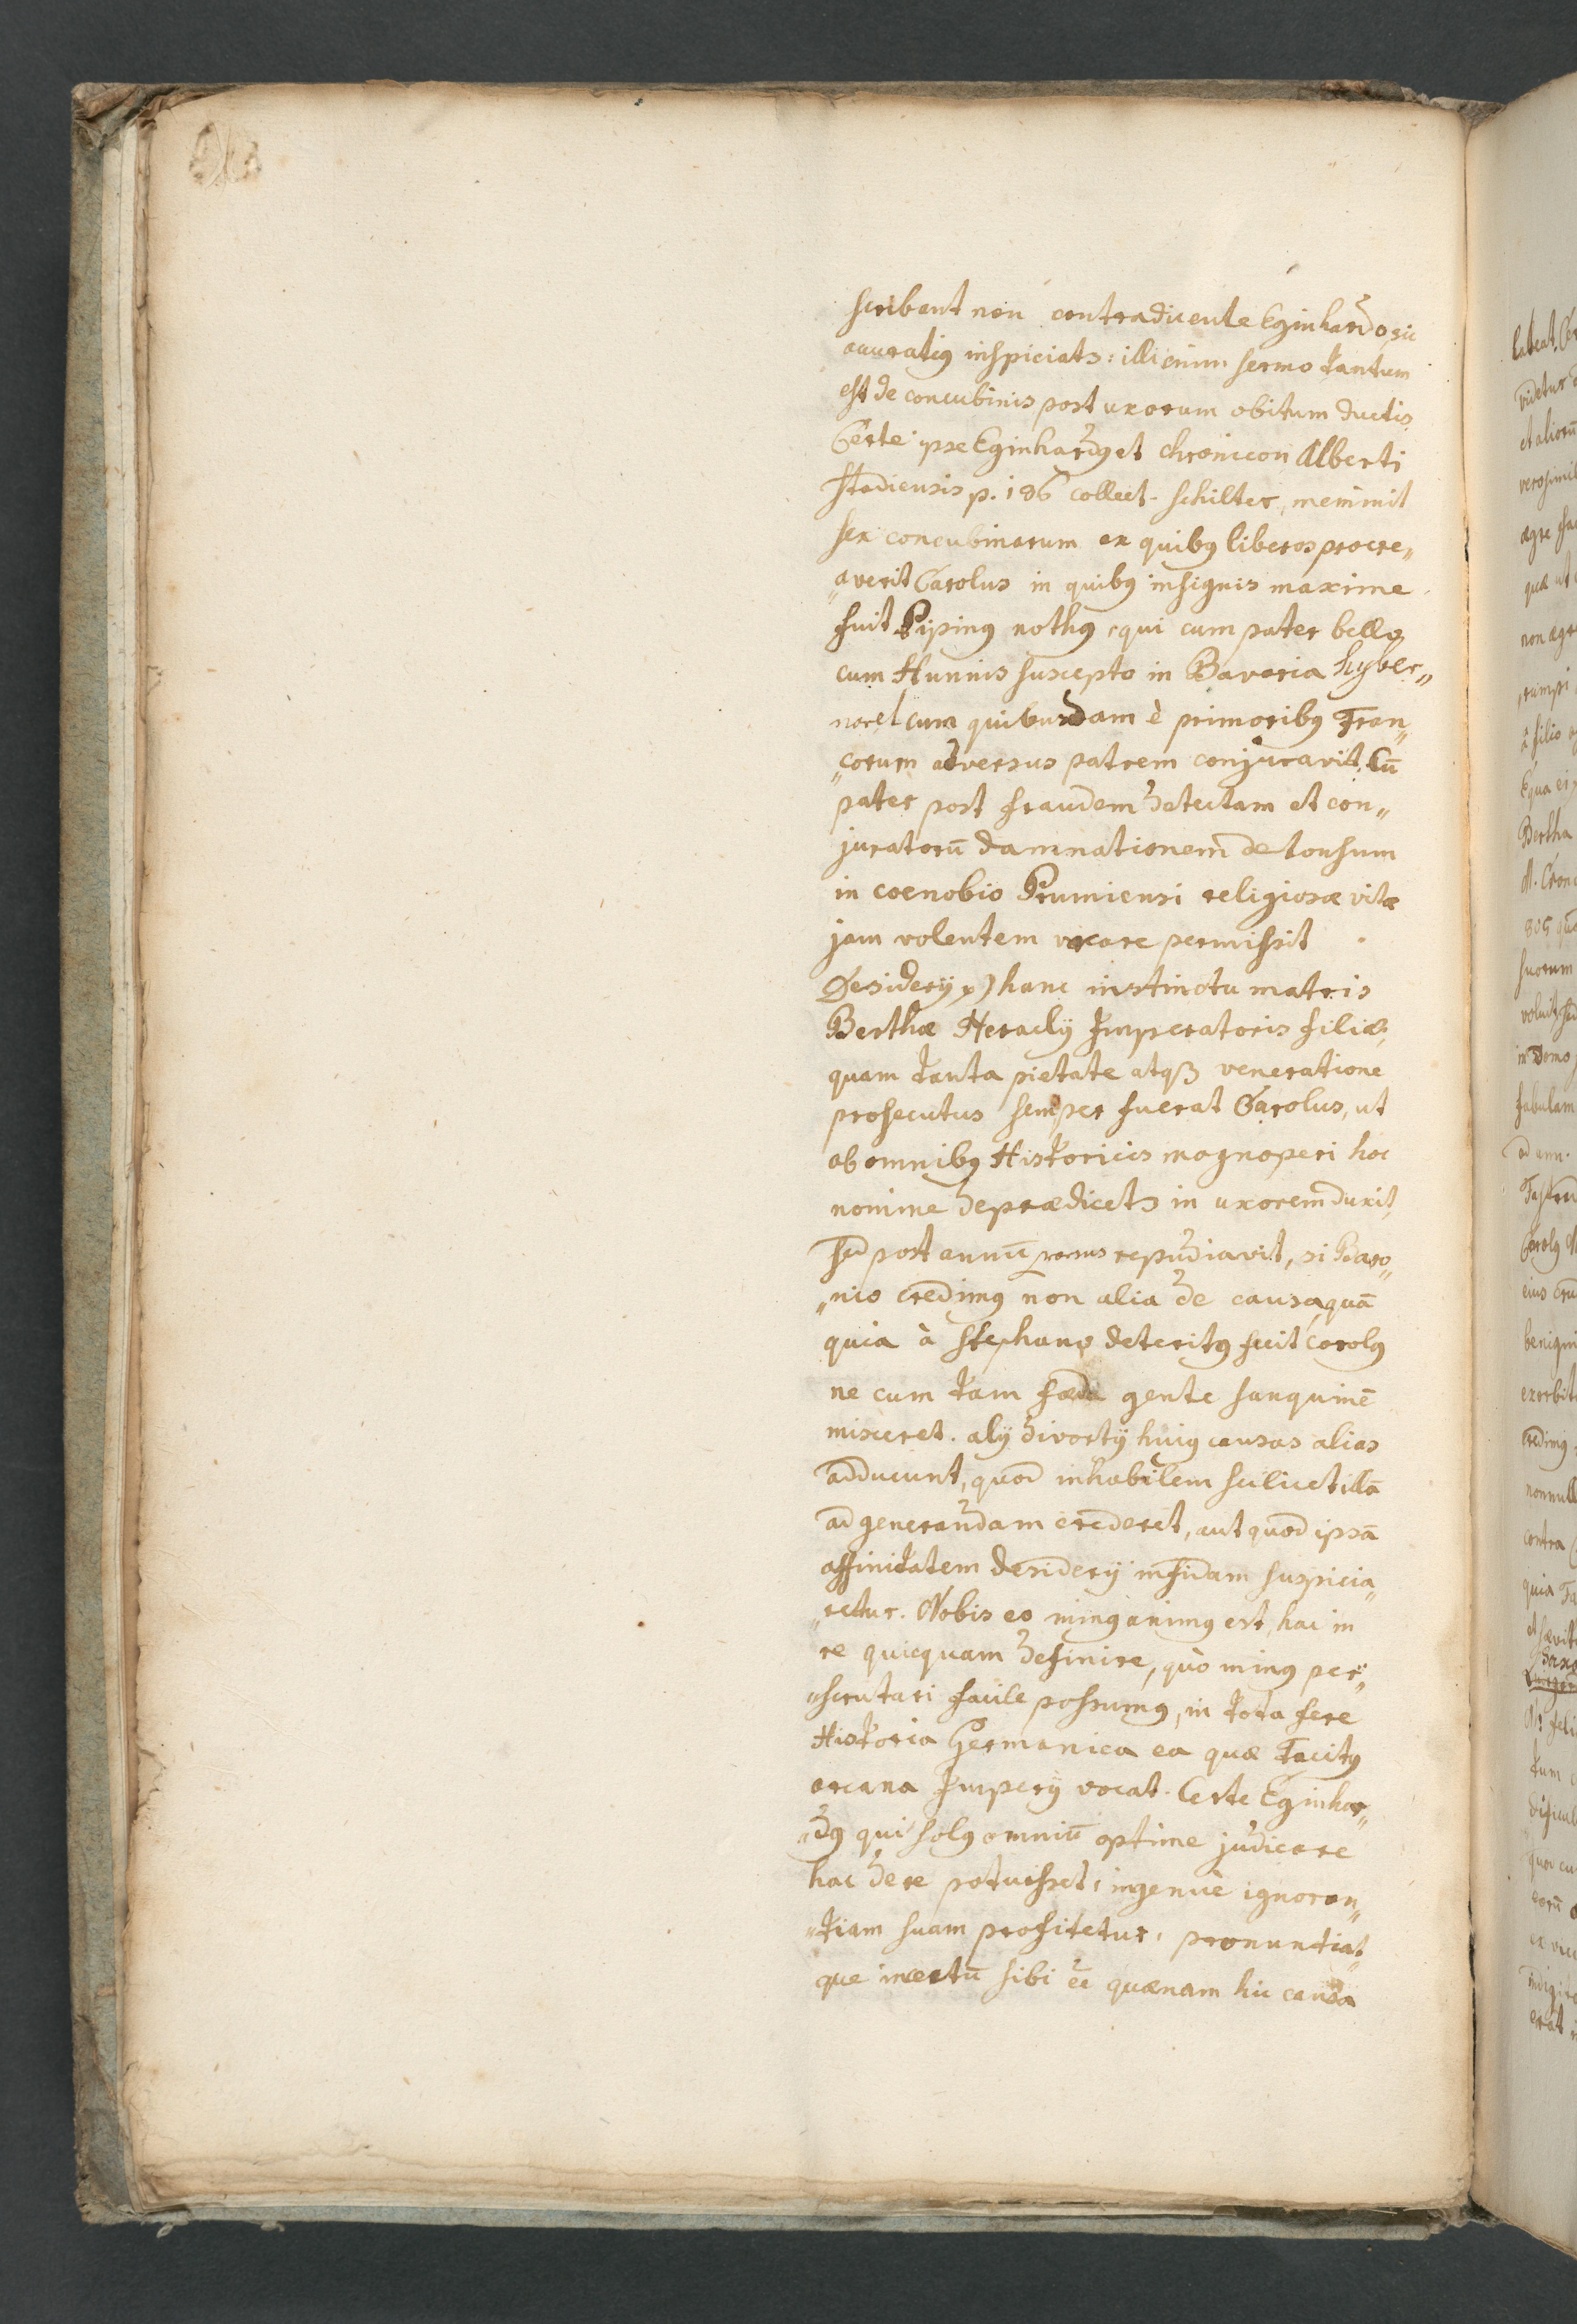 scribent non contradicente Eginhardo sic
accuratius inspiciatr: illi enim sermo tantum
est de concubinis post uxorum obitum ductis.
Certe ipse Eginhardus et chronicon Alberti
Stadiensis p. 186 collect. Schilter, meminit
sex concubinarum ex quibus liberos procre„
„averit Carolus in quibus insignis maxime
fuit Pipinus nothus, qui cum pater bello
cum Hunnis suscepto in Bavaria hyber„
naret cum quibusdam è primoribus Fran„
„corum adversus patrem conjuravit. Cū
pater post fraudem detectam et con„
juratorū damnationem detonsum
in coenobio Prumiensi religiosæ vitæ
jam volentem vacare permissit
Desiderij x) hanc instinctu matris
Berthæ Heraclij Imperatoris filiæ,
quam tanta pietate atqꝫ veneratione
prosecutus semper fuerat Carolus, ut
ab omnibus Historicis magnoperi hoc
nomine deprædicetr in uxorem duxit,
sed post annū rursus repudiavit, si Baro„
„nio credimus non alia de causa, quā
quia à Stephano deteritus fuit Carolus
ne cum tam fæda gente sanguinē
misceret. alij divortij huius causas alias
adducunt, quod inhabilem scilicet illā
ad generandam crederet, aut quod ipsā
affinitatem Desiderij infidam suspicia„
„retur. Nobis eo minus animus est, hac in
re quicquam definire, quò minus per„
„scrutari facile possumus, in tota fere
Historia Germanica ea quæ Tacitus
arcana Imperij vocat. Certe Eginhar„
„dus qui solus omniū optime judicare
hac de re potuisset, ingenuè ignoran„
„tiam suam profitetur, pronuntiat„
que incertū sibi eē quænam hic causa